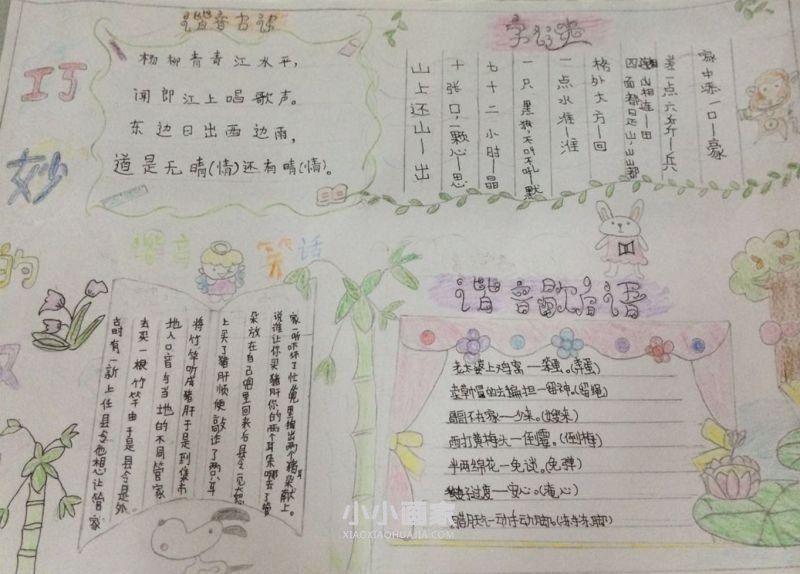 巧
妙
的
汉
谐音古诗
杨柳青青江水平，
闻郎江上唱歌声。
东边日出西边雨，
道是无晴(情)还有晴(情)。
字谜
家中添一口—豪
差一点六斤—兵
山相连—田
四面都是山，山山都
格外大方—回
一点水准—淮
一只黑狗，不叫不吼—默
七十二小时—晶
十张口，一颗心—思
山上还山—出
谐音笑话
古时有一新上任县令他想让管家
去买一根竹竿由于是县令是外
地人口音与当地的不同管家
将竹竿听成猪肝于是到集市
上买了猪肝顺便敲诈了两只耳
朵放在自己兜里回来后县令见大怒
说谁让你买猪肝你的两个耳朵哪去了管
家一听吓坏了忙兜里掏出两个猪耳朵献上。
谐音歇后语
老太婆上鸡窝—笨蛋。(奔蛋)
卖扁担—留神。(留绳)
西打黄梅头—倒霉。(倒梅)
半两棉花—免谈。(免弹)
小小画家
XIAOXIAOHUAJIA.COM